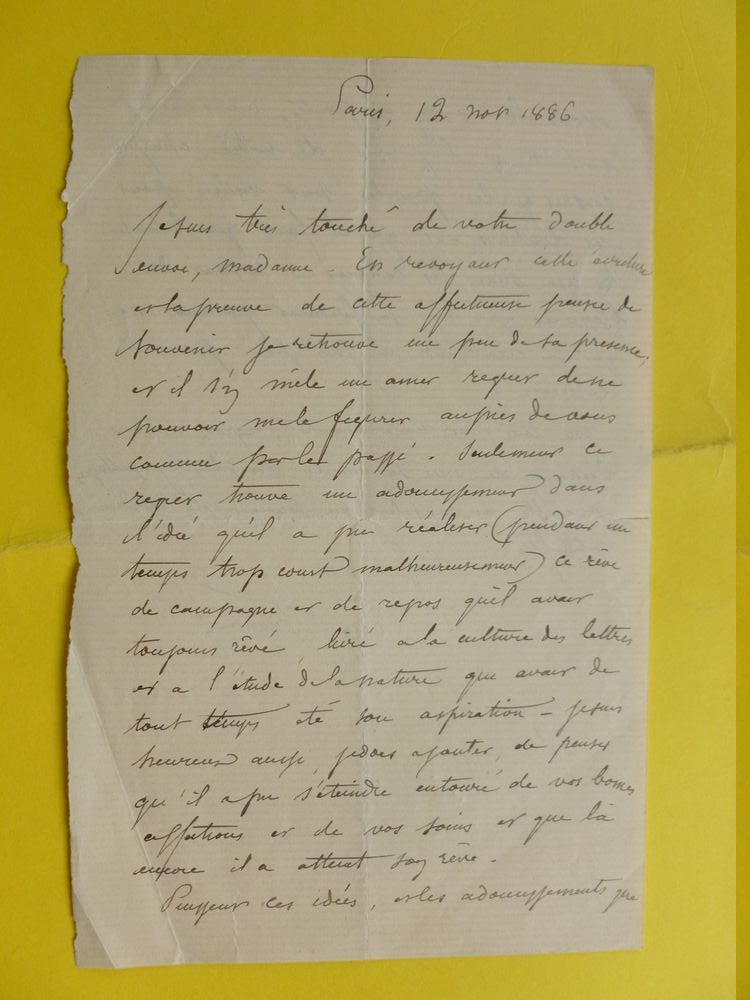 Paris, 12 nov 1886
Je suis très touché de votre double
envoi, madame. En revoyant cette écriture
et la preuve de cette affectueuse pensée de
souvenir je retrouve un peu de sa présence,
et il s'y mêle un amer regret de ne
pouvoir me le figurer auprès de vous
comme par le passé. Seulement ce
regret trouve un adoucissement dans
l'idée qu'il a pu réaliser (pendant un
temps trop court malheureusement) ce rêve
de campagne et de repos qu'il avait
toujours rêvé, livré à la culture des lettres
et a l'étude de la nature qui avait de
tout temps été son aspiration – je suis
heureux aussi, je dois ajouter, de penser
qu'il a pu s'éteindre entouré de vos bonnes
affections et de vos soins et que là
encore il a atteint son rêve.
Puissent ces idées, et les adoucissements que